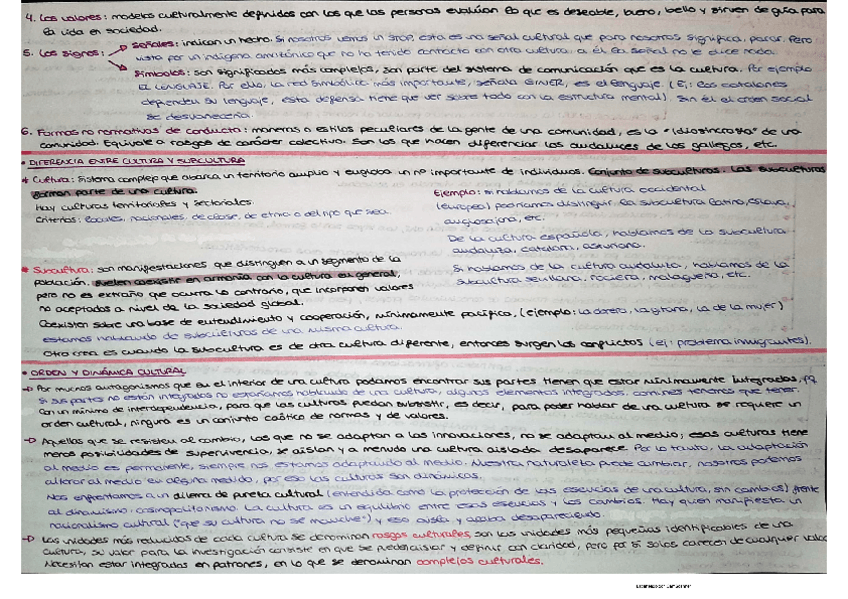 4. Los valores: modelos culturalmente definidos con los que las personas evalúan lo que es deseable, bueno, bello y sirven de guía para
la vida en sociedad.
5. Los signos: → Señales: indican un hecho. Si nosotros vemos un STOP, esta es una señal cultural que para nosotros significa, parar. Pero
visto por un indígena amazónico que no ha tenido contacto con otra cultura, a él la señal no le dice nada.
→ Símbolos: son significados más complejos, son parte del sistema de comunicación que es la cultura. Por ejemplo
EL LENGUAJE. Por ello, la red simbólica más importante, señala GINER, es el lenguaje. (Ej: los catalanes
defienden su lenguaje, esta defensa tiene que ver sobre todo con la estructura mental). Sin él el orden social
se desvanecería.
6. Formas no normativas de conducta: maneras o estilos peculiares de la gente de una comunidad, es la "idiosincrasia" de una
comunidad. Equivale a rasgos de carácter colectivo. Son los que hacen diferenciar los andaluces de los gallegos, etc.
• DIFERENCIA ENTRE CULTURA Y SUBCULTURA
* Cultura: Sistema complejo que abarca un territorio amplio y engloba un nº importante de individuos. Conjunto de subculturas. Las subculturas
forman parte de una cultura.
Hay culturas territoriales y sectoriales.
Criterios: locales, nacionales, de clase, de etnia o del tipo que sea.
Ejemplo: si hablamos de la cultura occidental
(europea) podríamos distinguir la subcultura latina, eslava,
anglosajona, etc.
De la cultura española, hablamos de la subcultura
andaluza, catalana, asturiana.
Si hablamos de la cultura andaluza, hablamos de la
subcultura sevillana, rociera, malagueña, etc.
* Subcultura: son manifestaciones que distinguen a un segmento de la
población. Suelen coexistir en armonía con la cultura en general,
pero no es extraño que ocurra lo contrario, que incorporen valores
no aceptados a nivel de la sociedad global.
Coexisten sobre una base de entendimiento y cooperación, mínimamente pacífica, (ejemplo: la obrera, la gitana, la de la mujer)
estamos hablando de subculturas de una misma cultura.
Otra cosa es cuando la subcultura es de otra cultura diferente, entonces surgen los conflictos (ej: problema inmigrantes).
• ORDEN Y DINÁMICA CULTURAL
→ Por muchos antagonismos que en el interior de una cultura podamos encontrar sus partes tienen que estar mínimamente integradas, pq
si sus partes no están integradas no estaríamos hablando de una cultura, algunos elementos integrados, comunes tenemos que tener.
Con un mínimo de interdependencia, para que las culturas puedan subsistir, es decir, para poder hablar de una cultura se requiere un
orden cultural, ninguna es un conjunto caótico de normas y de valores.
→ Aquellas que se resisten al cambio, las que no se adaptan a las innovaciones, no se adaptan al medio, esas culturas tiene
menos posibilidades de supervivencia, se aíslan y a menudo una cultura aislada desaparece. Por lo tanto, la adaptación
al medio es permanente, siempre nos estamos adaptando al medio. Nuestra naturaleza puede cambiar, nosotros podemos
alterar al medio en alguna medida, por eso las culturas son dinámicas.
Nos enfrentamos a un dilema de pureza cultural (entendida como la protección de las esencias de una cultura, sin cambios) frente
al dinamismo: cosmopolitismo. La cultura es un equilibrio entre esas esencias y los cambios. Hay quien manifiesta un
nacionalismo cultural ("que su cultura no se manche") y eso aísla y acaba desapareciendo.
→ Las unidades más reducidas de cada cultura se denominan rasgos culturales, son las unidades más pequeñas identificables de una
cultura, su valor para la investigación consiste en que se pueden aislar y definir con claridad, pero por sí solos carecen de cualquier valor
Necesitan estar integradas en patrones, en lo que se denominan complejos culturales.